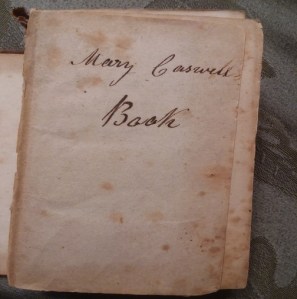 Mary Caswell
Book